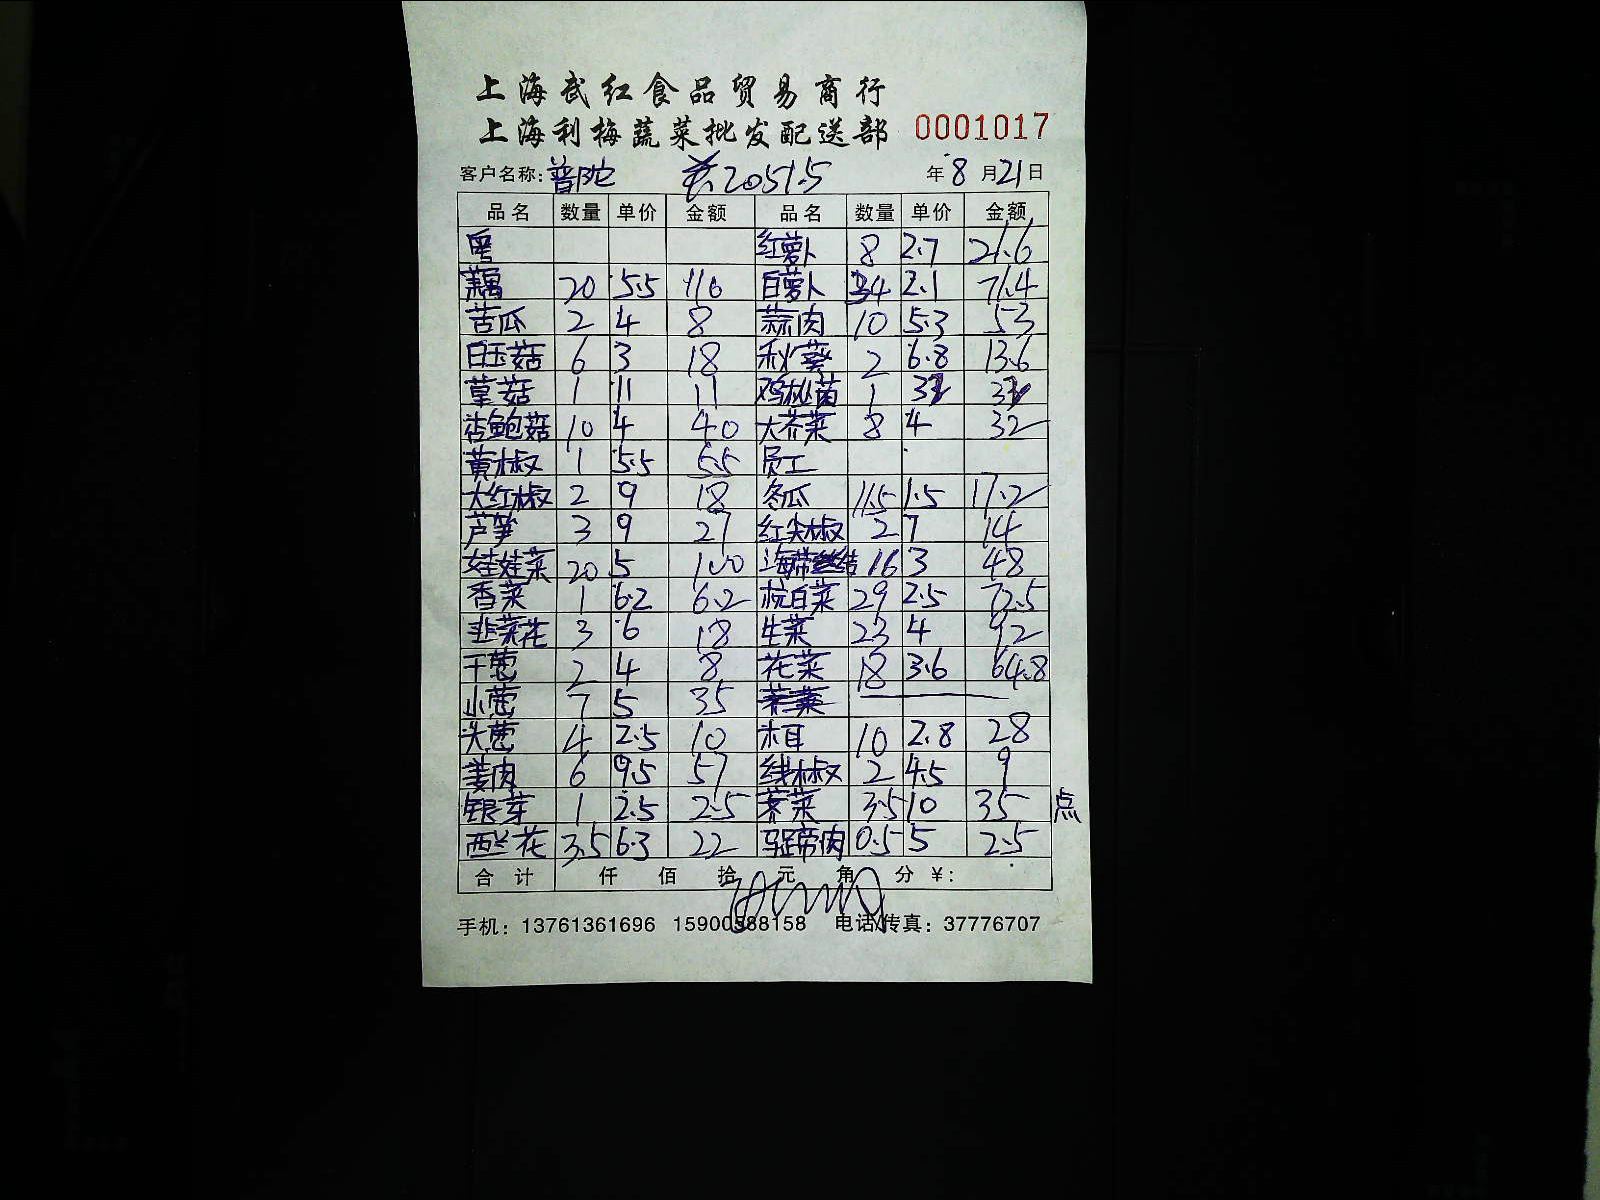 上海武红食品贸易商行
上海利梅蔬菜批发配送部 0001017
客户名称: 普陀 共2051.5 年8月21日
品名 数量 单价 金额 品名 数量 单价 金额
粤 红萝卜 8 2.7 21.6
藕 20 5.5 110 白萝卜 34 2.1 71.4
苦瓜 2 4 8 蒜肉 10 5.3 53
白玉菇 6 3 18 秋葵 2 6.8 13.6
草菇 1 11 11 鸡枞菌 1
杏鲍菇 10 4 40 大芥菜 8 4 32
黄椒 1 5.5 5.5 员工
大红椒 2 9 18 冬瓜 11.5 1.5 17.2
芦笋 3 9 27 红尖椒 2 7 14
娃娃菜 20 5 100 海带结 16 3 48
香菜 1 6.2 6.2 杭白菜 29 2.5 72.5
韭菜花 3 6 18 生菜 23 4 92
干葱 2 4 8 花菜 18 3.6 64.8
小葱 7 5 35
头葱 4 2.5 10 木耳 10 2.8 28
姜肉 6 9.5 57 线椒 2 4.5 9
银芽 1 2.5 2.5 荠菜 3.5 10 35 点
西兰花 3.5 6.3 22 马蹄肉 0.5 5 2.5
合计 仟 佰 拾 元 角 分 ¥:
手机: 13761361696 15900588158 电话/传真: 37776707